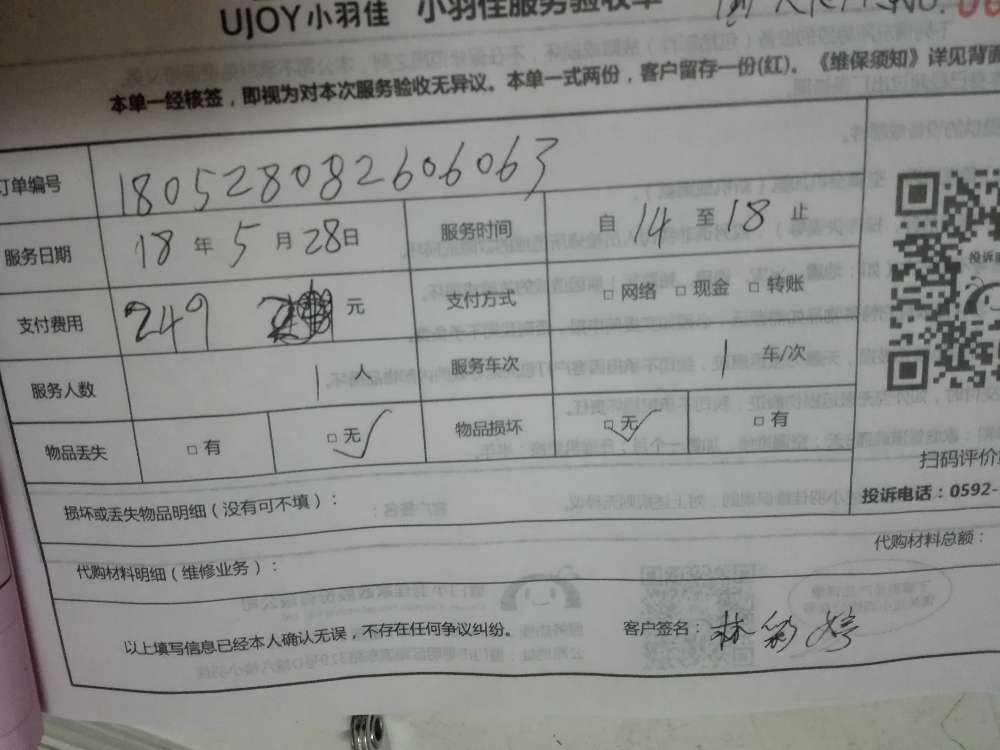 UJOY小羽佳 小羽佳服务验收单
本单一经核签，即视为对本次服务验收无异议。本单一式两份，客户留存一份(红)。《维保须知》详见背面
订单编号 180528082606063
服务日期 18 年 5 月 28 日 服务时间 自 14 至 18 止
支付费用 249 元 支付方式 □ 网络 □ 现金 □ 转账
服务人数 1 人 服务车次 1 车/次
物品丢失 □ 有 □ 无 ✓ 物品损坏 □ 无 ✓ □ 有
扫码评价
损坏或丢失物品明细（没有可不填）：
投诉电话：0592-
代购材料明细（维修业务）：
代购材料总额：
以上填写信息已经本人确认无误，不存在任何争议纠纷。 客户签名：林彩婷